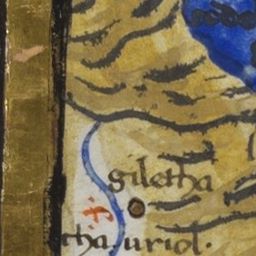 giletha
tha uriol.